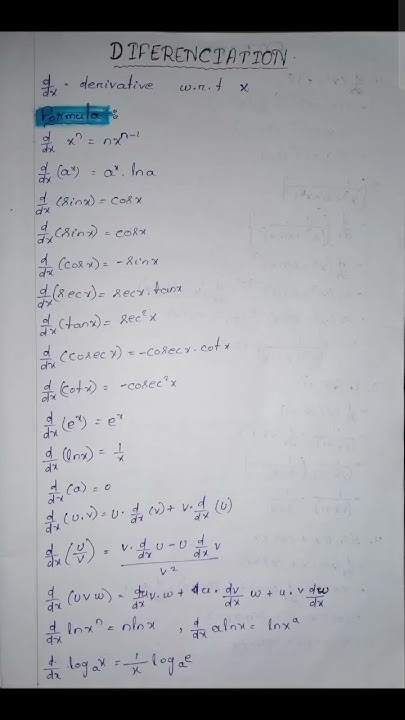 DIFERENCIATION
d/dx - derivative w.r.t x
Formula :-
d/dx xⁿ = nxⁿ⁻¹
d/dx (aˣ) = aˣ. ln a
d/dx (sinx) = cosx
d/dx (sinx) = cosx
d/dx (cosx) = -sinx
d/dx (secx) = secx.tanx
d/dx (tanx) = sec²x
d/dx (cosecx) = -cosecx.cotx
d/dx (cotx) = -cosec²x
d/dx (eˣ) = eˣ
d/dx (lnx) = 1/x
d/dx (a) = 0
d/dx (U.V) = U. d/dx (V) + V. d/dx (U)
d/dx (U/V) = (V. d/dx U - U d/dx V)/V²
d/dx (UVW) = du/dx v.w + u. dv/dx w + u.v dw/dx
d/dx lnxⁿ = nlnx , d/dx alnx = lnxᵃ
d/dx logₐx = 1/x logₐe